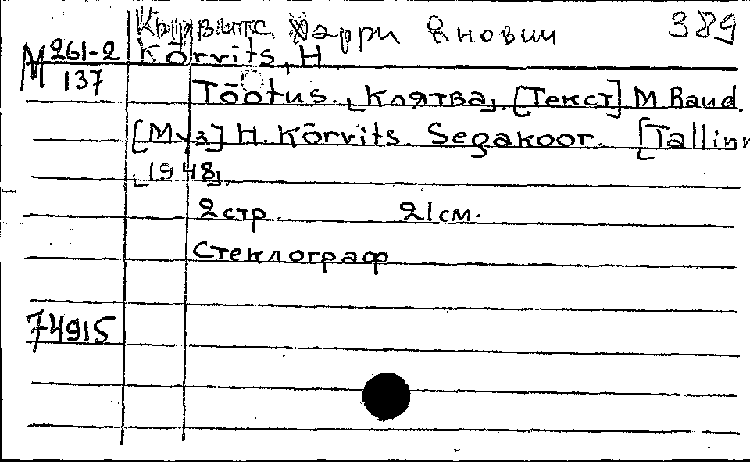 Кырвитс Харри Янович 389
М 261-2 Kõrvits, H
137
Tõotus. [Клятва]. [Текст] М. Raud.
[Муз] H. Kõrvits. Segakoor. [Tallinn
[1948].
2 стр. 21 см.
Стеклограф
74915